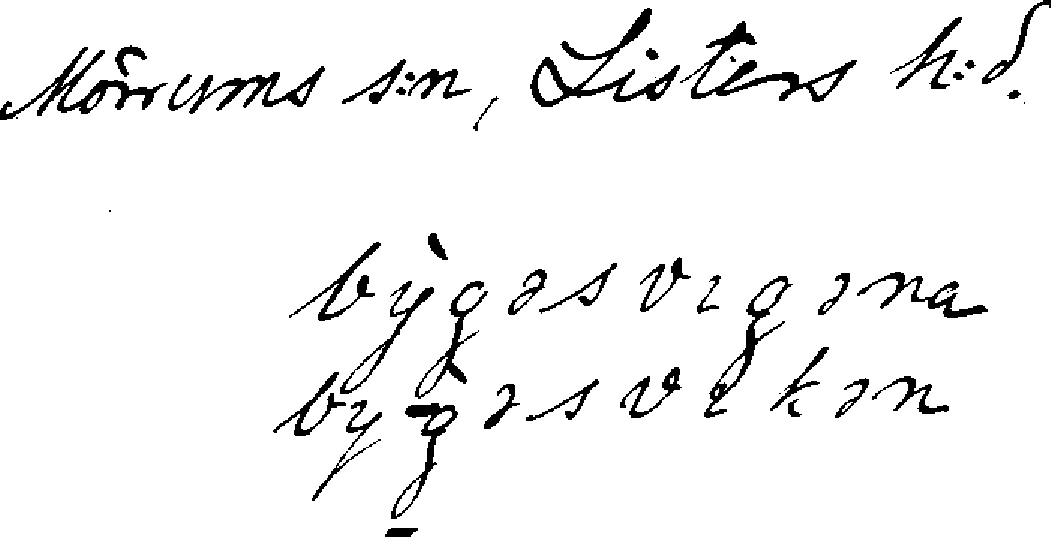 Mörrums s:n, Listers h:d.
bỳgəsvɪgəna
byg̀əsvɪkən